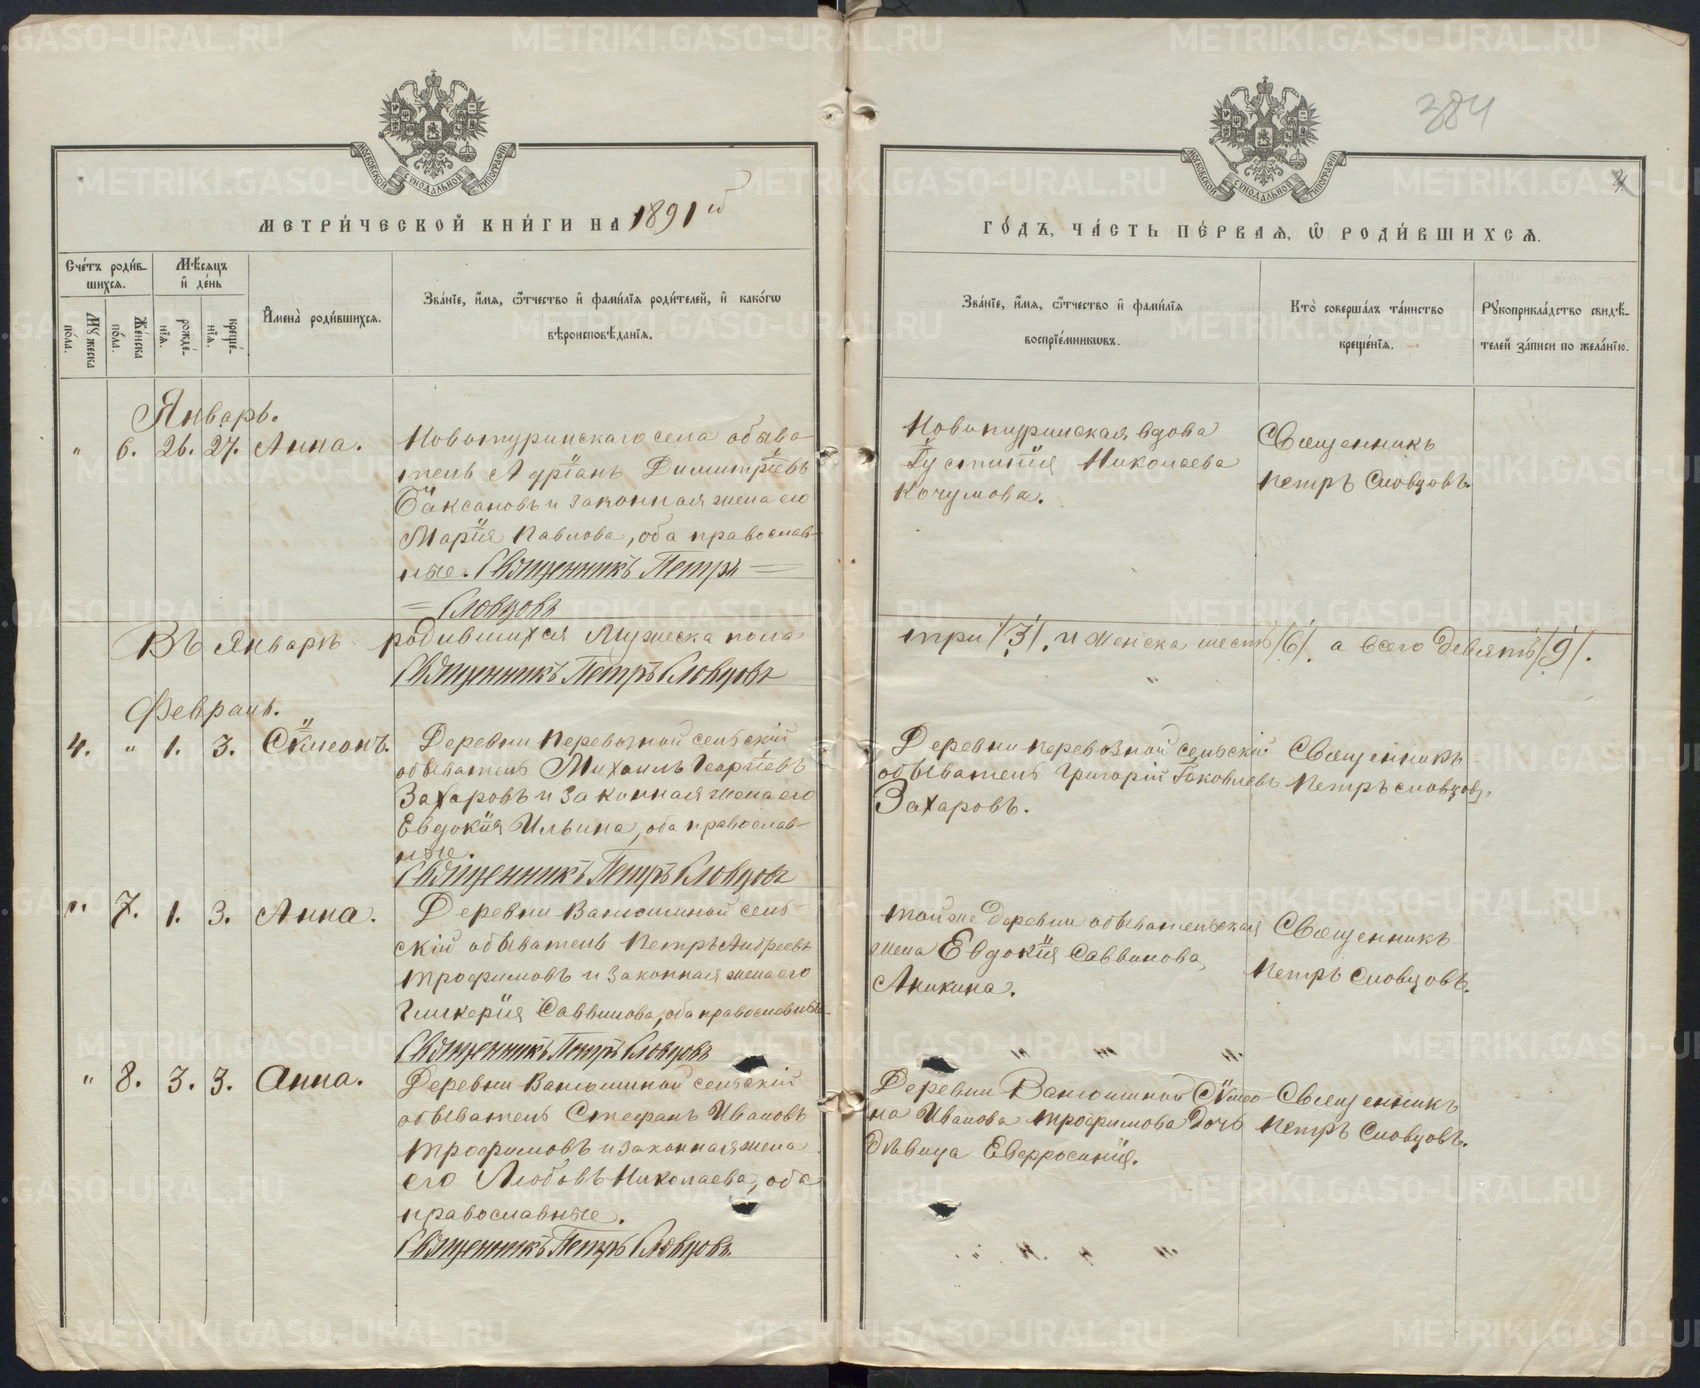 METRIKI.GASO-URAL.RU
384
МОСКОВСКОЙ СѴНОДАЛЬНОЙ ТИПОГРАФІИ
МОСКОВСКОЙ СѴНОДАЛЬНОЙ ТИПОГРАФІИ
МЕТРИ́ЧЕСКОЙ КНИ́ГИ НА 1891й
ГО́ДЪ, ЧА́СТЬ ПЕ́РВАѦ, Ѿ РОДИ́ВШИХСѦ.
Сче́тъ роди́в-
шихсѧ.
Му́жеска
по́ла.
Же́нска
по́ла.
Мѣ́сѧцъ
и҆ де́нь
рожде́-
нїѧ.
креще́-
нїѧ.
И҆мена̀ роди́вшихсѧ.
Зва́нїе, и҆́мѧ, ѻ҆́тчество и҆ фами́лїѧ роди́телей, и҆ како́гѡ
вѣроисповѣ́данїѧ.
Зва́нїе, и҆́мѧ, ѻ҆́тчество и҆ фами́лїѧ
воспрїе́мникѡвъ.
Кто̀ соверша́лъ та́инство
креще́нїѧ.
Рꙋкоприкла́дство свидѣ́-
телей за́писи по жела́нїю.
Январь.
" 6. 26. 27. Анна.
Новотуринскаго села обыва-
тель Адріанъ Димитріевъ
Баксановъ и законная жена его
Марія Павлова, оба православ-
ные. Священникъ Петръ =
= Словцовъ
Новотуринская вдова
Іустинія Николаева
Кочумова.
Священникъ
Петръ Словцовъ.
Въ Январѣ родившихся мужеска пола
три /3/, и женска шесть /6/, а всего девять /9/.
Священникъ Петръ Словцовъ
Февраль.
4. " 1. 3. Сѵмеонъ.
Деревни Перевозной сельскій
обыватель Михаилъ Георгіевъ
Захаровъ и законная жена его
Евдокія Ильина, оба православ-
ные.
Священникъ Петръ Словцовъ
Деревни Перевозной сельскій
обыватель Григорій Іаковлевъ
Захаровъ.
Священникъ
Петръ Словцовъ.
" 7. 1. 3. Анна.
Деревни Ванюшиной сель-
скій обыватель Петръ Андреевъ
Трофимовъ и законная жена его
Гликерія Саввинова, оба православные
Священникъ Петръ Словцовъ
Той же деревни обывательская
жена Евдокія Саввинова
Аникина.
Священникъ
Петръ Словцовъ.
" 8. 3. 3. Анна.
Деревни Ванюшиной сельскій
обыватель Стефанъ Ивановъ
Трофимовъ и законная жена
его Любовь Николаева, оба
православные.
Священникъ Петръ Словцовъ
Деревни Ванюшиной Сѵмео-
на Иванова Трофимова дочь
дѣвица Евфросинія.
Священникъ
Петръ Словцовъ.